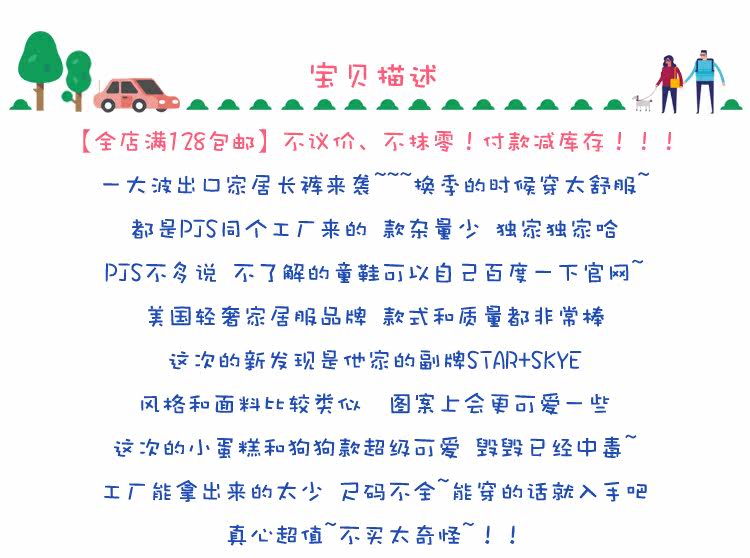 宝贝描述
【全店满128包邮】不议价、不抹零！付款减库存！！！
一大波出口家居长裤来袭~~~换季的时候穿太舒服~
都是PJS同个工厂来的 款杂量少 独家独家哈
PJS不多说 不了解的童鞋可以自己百度一下官网~
美国轻奢家居服品牌 款式和质量都非常棒
这次的新发现是他家的副牌STAR+SKYE
风格和面料比较类似 图案上会更可爱一些
这次的小蛋糕和狗狗款超级可爱 毁毁已经中毒~
工厂能拿出来的太少 尺码不全~能穿的话就入手吧
真心超值~不买太奇怪~！！